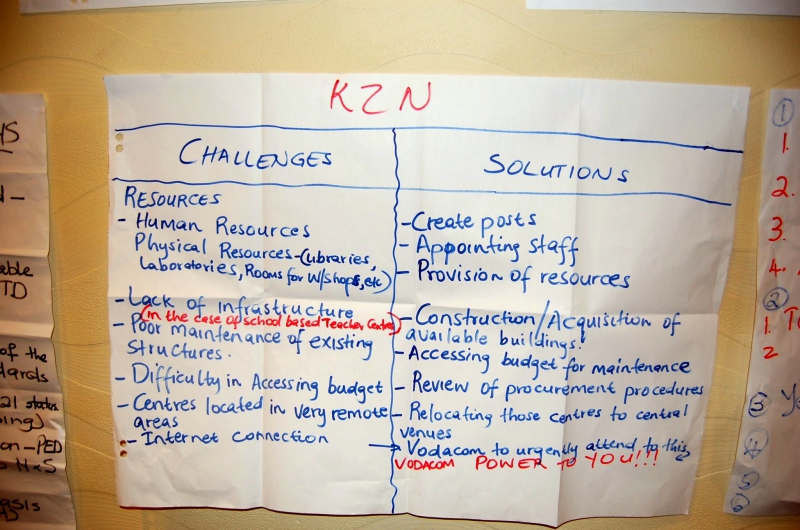 KZN
CHALLENGES
RESOURCES
- Human Resources
Physical Resources - (Libraries,
Laboratories, Rooms for W/Shops, etc)
- Lack of infrastructure
(in the case of school based Teacher Centres)
- Poor maintenance of existing
structures.
- Difficulty in Accessing budget
- Centres located in very remote
areas
- Internet connection
SOLUTIONS
- Create posts
- Appointing staff
- Provision of resources
- Construction/Acquisition of
available buildings!
- Accessing budget for maintenance
- Review of procurement procedures
- Relocating those centres to central
venues
Vodacom to urgently attend to this
VODACOM POWER TO YOU!!!
TD
of the
on - PED
1
1.
2.
3.
4.
2
1.
2
3
4
5
6